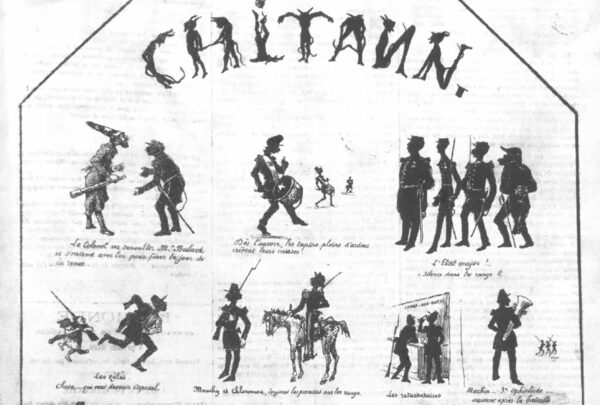 CHITAUN.
Le Colonel va consulter Mr Boulard
et s'entend avec lui pour fixer le jour de
la revue.
Dès l'aurore, les tapins pleins d'ardeur
crèvent leurs caisses!
L'Etat major!..
- Silence dans les rangs!!
Les zélés
Chose,... qui veut devenir caporal.
et Chlonneau, toujours les premiers sur les rangs.
Les retardataires
Machin... 3e Ophicléide...
revient après la bataille